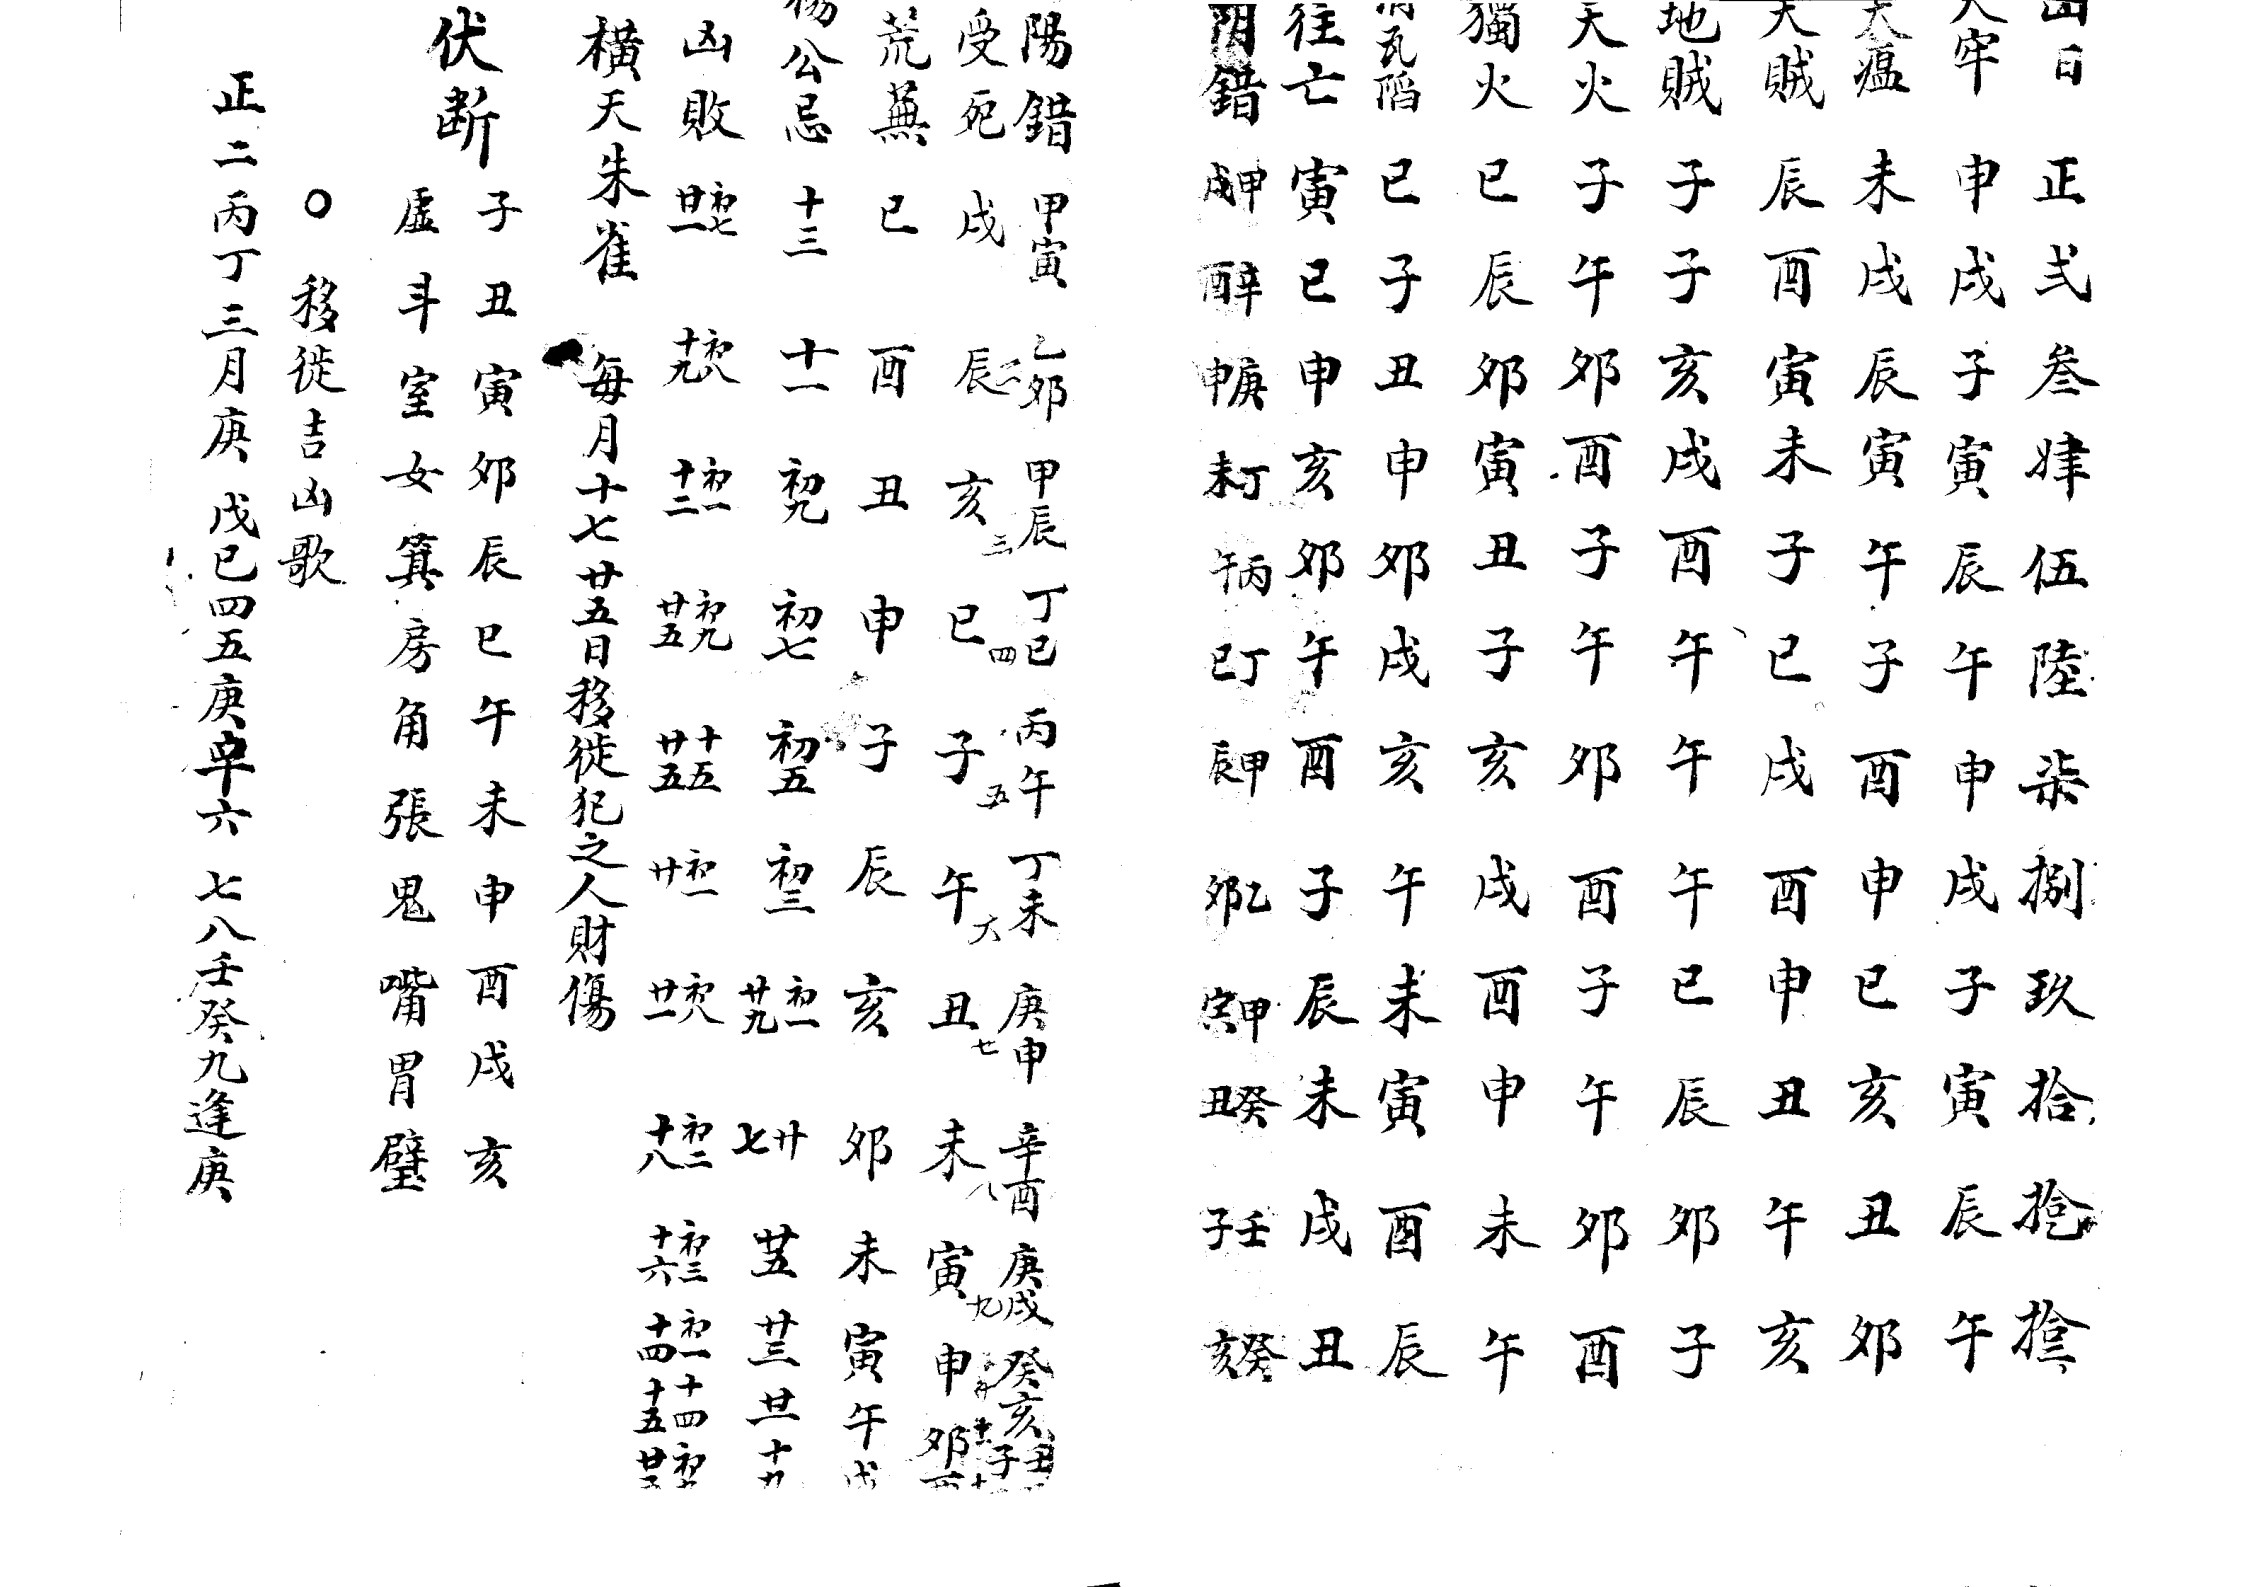 凶日 正 弍 叁 肆 伍 陸 柒 捌 玖 拾
天牢 申 戌 子 寅 辰 午 申 戌 子 寅 辰 午
天瘟 未 戌 辰 寅 午 子 酉 申 巳 亥 丑 卯
天賊 辰 酉 寅 未 子 巳 戌 酉 申 丑 午 亥
地賊 子 子 亥 戌 酉 午 午 午 巳 辰 卯 子
天火 子 午 卯 酉 子 午 卯 酉 子 午 卯 酉
獨火 巳 辰 卯 寅 丑 子 亥 戌 酉 申 未 午
瓦陷 巳 子 丑 申 卯 戌 亥 午 未 寅 酉 辰
往亡 寅 巳 申 亥 卯 午 酉 子 辰 未 戌 丑
阴錯 辛酉 庚申 丁未 丙午 丁巳 甲辰 乙卯 甲寅 癸丑 壬子 癸亥
陽錯 甲寅 乙卯 甲辰 丁巳 丙午 丁未 庚申 辛酉 庚戌 癸亥 壬子
受死 戌 辰 亥 巳 子 午 丑 未 寅 申 卯
二 三 四 五 六 七 八 九
荒蕪 巳 酉 丑 申 子 辰 亥 卯 未 寅 午 戌
楊公忌 十三 十一 初九 初七 初五 初三 初一 廿九 廿七 廿五 廿三 廿一 十九
凶敗 初七 廿一 初八 十九 初一 十二 初九 廿五 十五 廿五 初一 廿 初八 廿一 初二 十八 初三 十六 初一 十四 十四 十五
橫天朱雀 每月十七廿五日移徙犯之人財傷
伏断 子 丑 寅 卯 辰 巳 午 未 申 酉 戌 亥
虛 斗 室 女 箕 房 角 張 鬼 嘴 胃 壁
○ 移徙吉凶歌
正二丙丁三月庚 戊巳四五庚 六 七八壬癸九逢庚